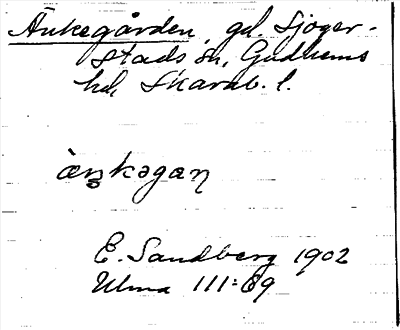 Änkegården, gd. Sjöger-
stads sn, Gudhems
hd, Skarab. l.
àŋkəgaɳ
E. Sandberg 1902
Ulma 111:69